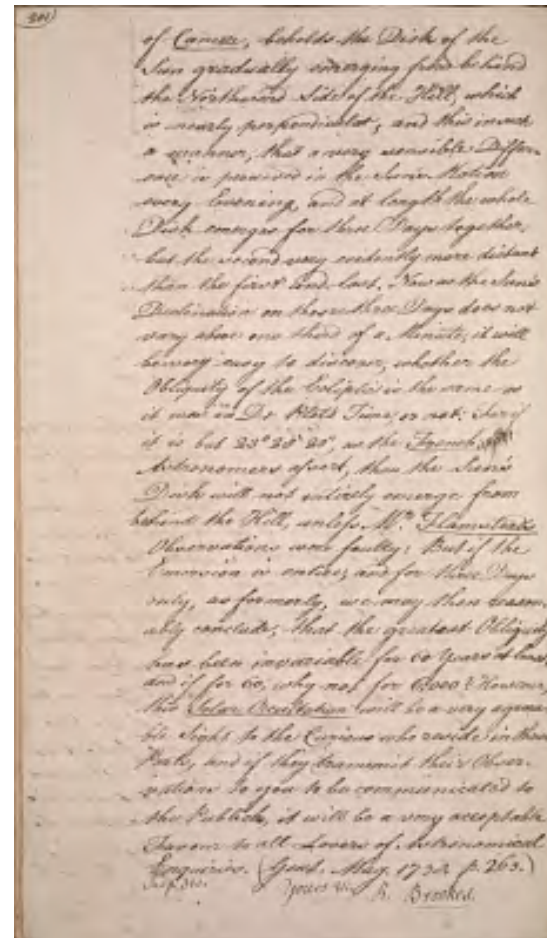 of Cancer, beholds the Disk of the
Sun gradually emerging from behind
the Northward Side of the Hill, which
is nearly perpendicular, and this in such
a manner, that a very sensible Differ=
ence is perceived in the Sun's Motion
every Evening, and at length the whole
Disk emerges for three Days together,
but the second very evidently more distant
than the first and last. Now as the Sun's
Declination on these three Days does not
vary above one third of a Minute, it will
be very easy to discover, whether the
Obliquity of the Ecliptic is the same as
it was in Dr Plot's Time, or not: For if
it is but 23° 28' 20", as the French
Astronomers assert, then the Sun's
Disk will not entirely emerge from
behind the Hill, unless Mr. Flamsteed's
Observations were faulty: But if the
Emersion is entire, and for three Days
only, as formerly, we may then reason=
ably conclude, that the greatest Obliquity
has been invariable for 60 Years at least,
and if for 60, why not for 6,000? However,
this Solar Occultation will be a very agreea=
ble Sight to the Curious who reside in those
Parts, and if they transmit their Obser=
vations to you to be communicated to
the Publick, it will be a very acceptable
Favour to all Lovers of Astronomical
Enquiries. (Gent. Mag. 173 p. 263.)
Yours &c R. Brookes.